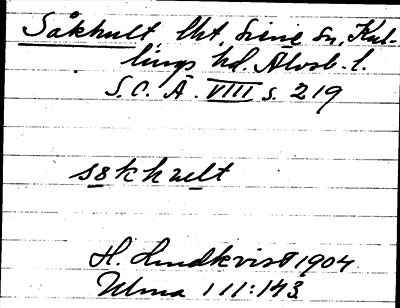 Såkhult lht, Siene sn, Kul-
lings hd. Älvsb. l.
S.O.Ä. VIII s. 219
sɷkhult
H. Lindkvist 1904
Ulma 111:143